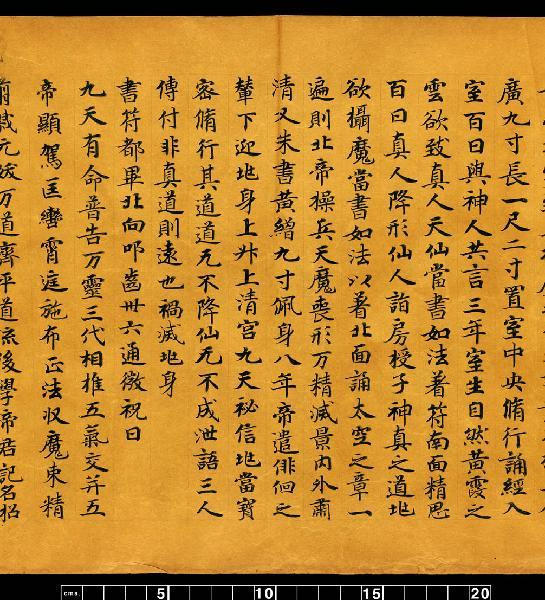 廣九寸長一尺二寸置室中央脩行誦經入
室百日與神人共言三年室生自然黃霞之
雲欲致真人天仙當書如法著符南面精思
百日真人降形仙人詣房授子神真之道地
欲攝魔當書如法以著北面誦太空之章一
遍則北帝操兵天魔喪形万精滅景內外肅
清又朱書黃繒九寸佩身八年帝遣俳佪之
輦下迎地身上升上清宮九天祕信地當寶
密脩行其道道无不降仙无不成泄語三人
傳付非真道則遠也禍滅地身
書符都畢北向叩齒卅六通微祝曰
九天有命普告万靈三代相推五氣交并五
帝顯駕匡轡霄庭施布正法収魔束精
万道齊平道流後學帝君記名招
cms. 5 10 15 20